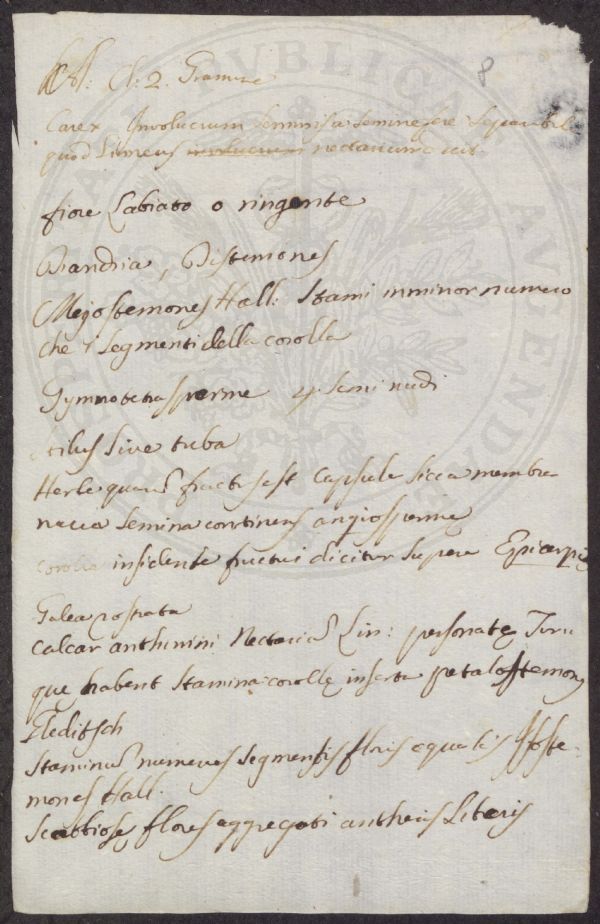 Cl: 2. Gramine
8
Carex Involucrum seminis a semine fere separabile
quod Linneus involucrum nectarium vocat
fiore Labiato o ringente
Diandria, Distemones
Mejostemones Hall: Stami in minor numero
che i segmenti della corolla
Gymnotetrasperme 4 semi nudi
stilus sive tuba
Herbe quarum fructus est Capsula sicca membra
nacea semina continens angiosperme
Corolla insidente fructui dicitur supera Epicarpie
Galea rostrata
Calcar anthirrini Nectarium Lin: personate
que habent stamina corolle inserta petalostemones
Gleditsch
Staminum numerus segmentis floris equalis Isoste-
mones Hall.
Scabiose flores aggregati antheris Liberis
PUBLICAE